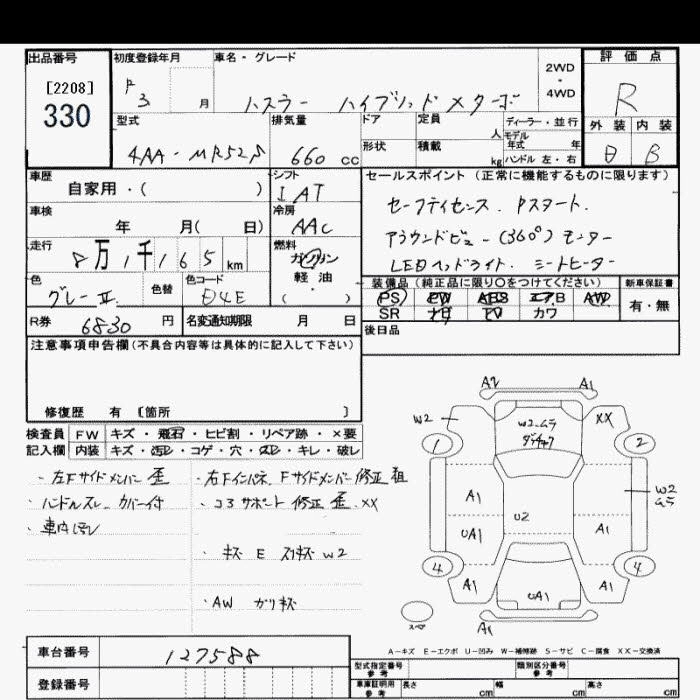 出品番号
[2208]
330
初度登録年月
R
3 月
車名・グレード
ハスラー ハイブリッド Xターボ
2WD
・
4WD
評価点
R
外装 内装
B
型式
4AA-MR52S
排気量
660 cc
ドア
形状
定員
人
積載
kg
ディーラー・並行
モデル
年式 年
ハンドル 左・右
車歴
自家用・( )
シフト
I AT
車検
年 月( 日)
冷房
AAC
走行
8万1千165km
燃料
ガソリン
軽・油
( )
色
グレーⅡ
色替
色コード
R券
6830 円
名変通知期限 月 日
セールスポイント(正常に機能するものに限ります)
セーフティセンス. Pスタート.
アラウンドビュー(360°)モニター
LEDヘッドライト. シートヒーター
装備品(純正品に限り〇をつけてください)
PS PW ABS エアB AW
SR ナビ TV カワ
新車保証書
有・無
後日品
注意事項申告欄(不具合内容等は具体的に記入して下さい)
修復歴 有 [箇所 ]
検査員 FW キズ・飛石・ヒビ割・リペア跡・×要
記入欄 内装 キズ・汚レ・コゲ・穴・スレ・キレ・破レ
・左Fサイドメンバー 歪
・ハンドルスレ. カバー付
・車内汚レ
・右Fインパネ. Fサイドメンバー修正 粗
・コアサポート 修正 歪. XX
・キズ E スリキズ W2
・AW ガリキズ
A2 A1
W2 W2.ムラ XX
1 2
A1 W2
ムラ
U2
UA1 A1
4 4
A1 UA1 A1
スペア
A1
A-キズ E-エクボ U-凹み W-補修跡 S-サビ C-腐食 XX-交換済
車台番号 127588
登録番号
型式指定番号
参考
類別区分番号
参考
車庫証明用
参考
長さ cm 幅 cm 高さ cm